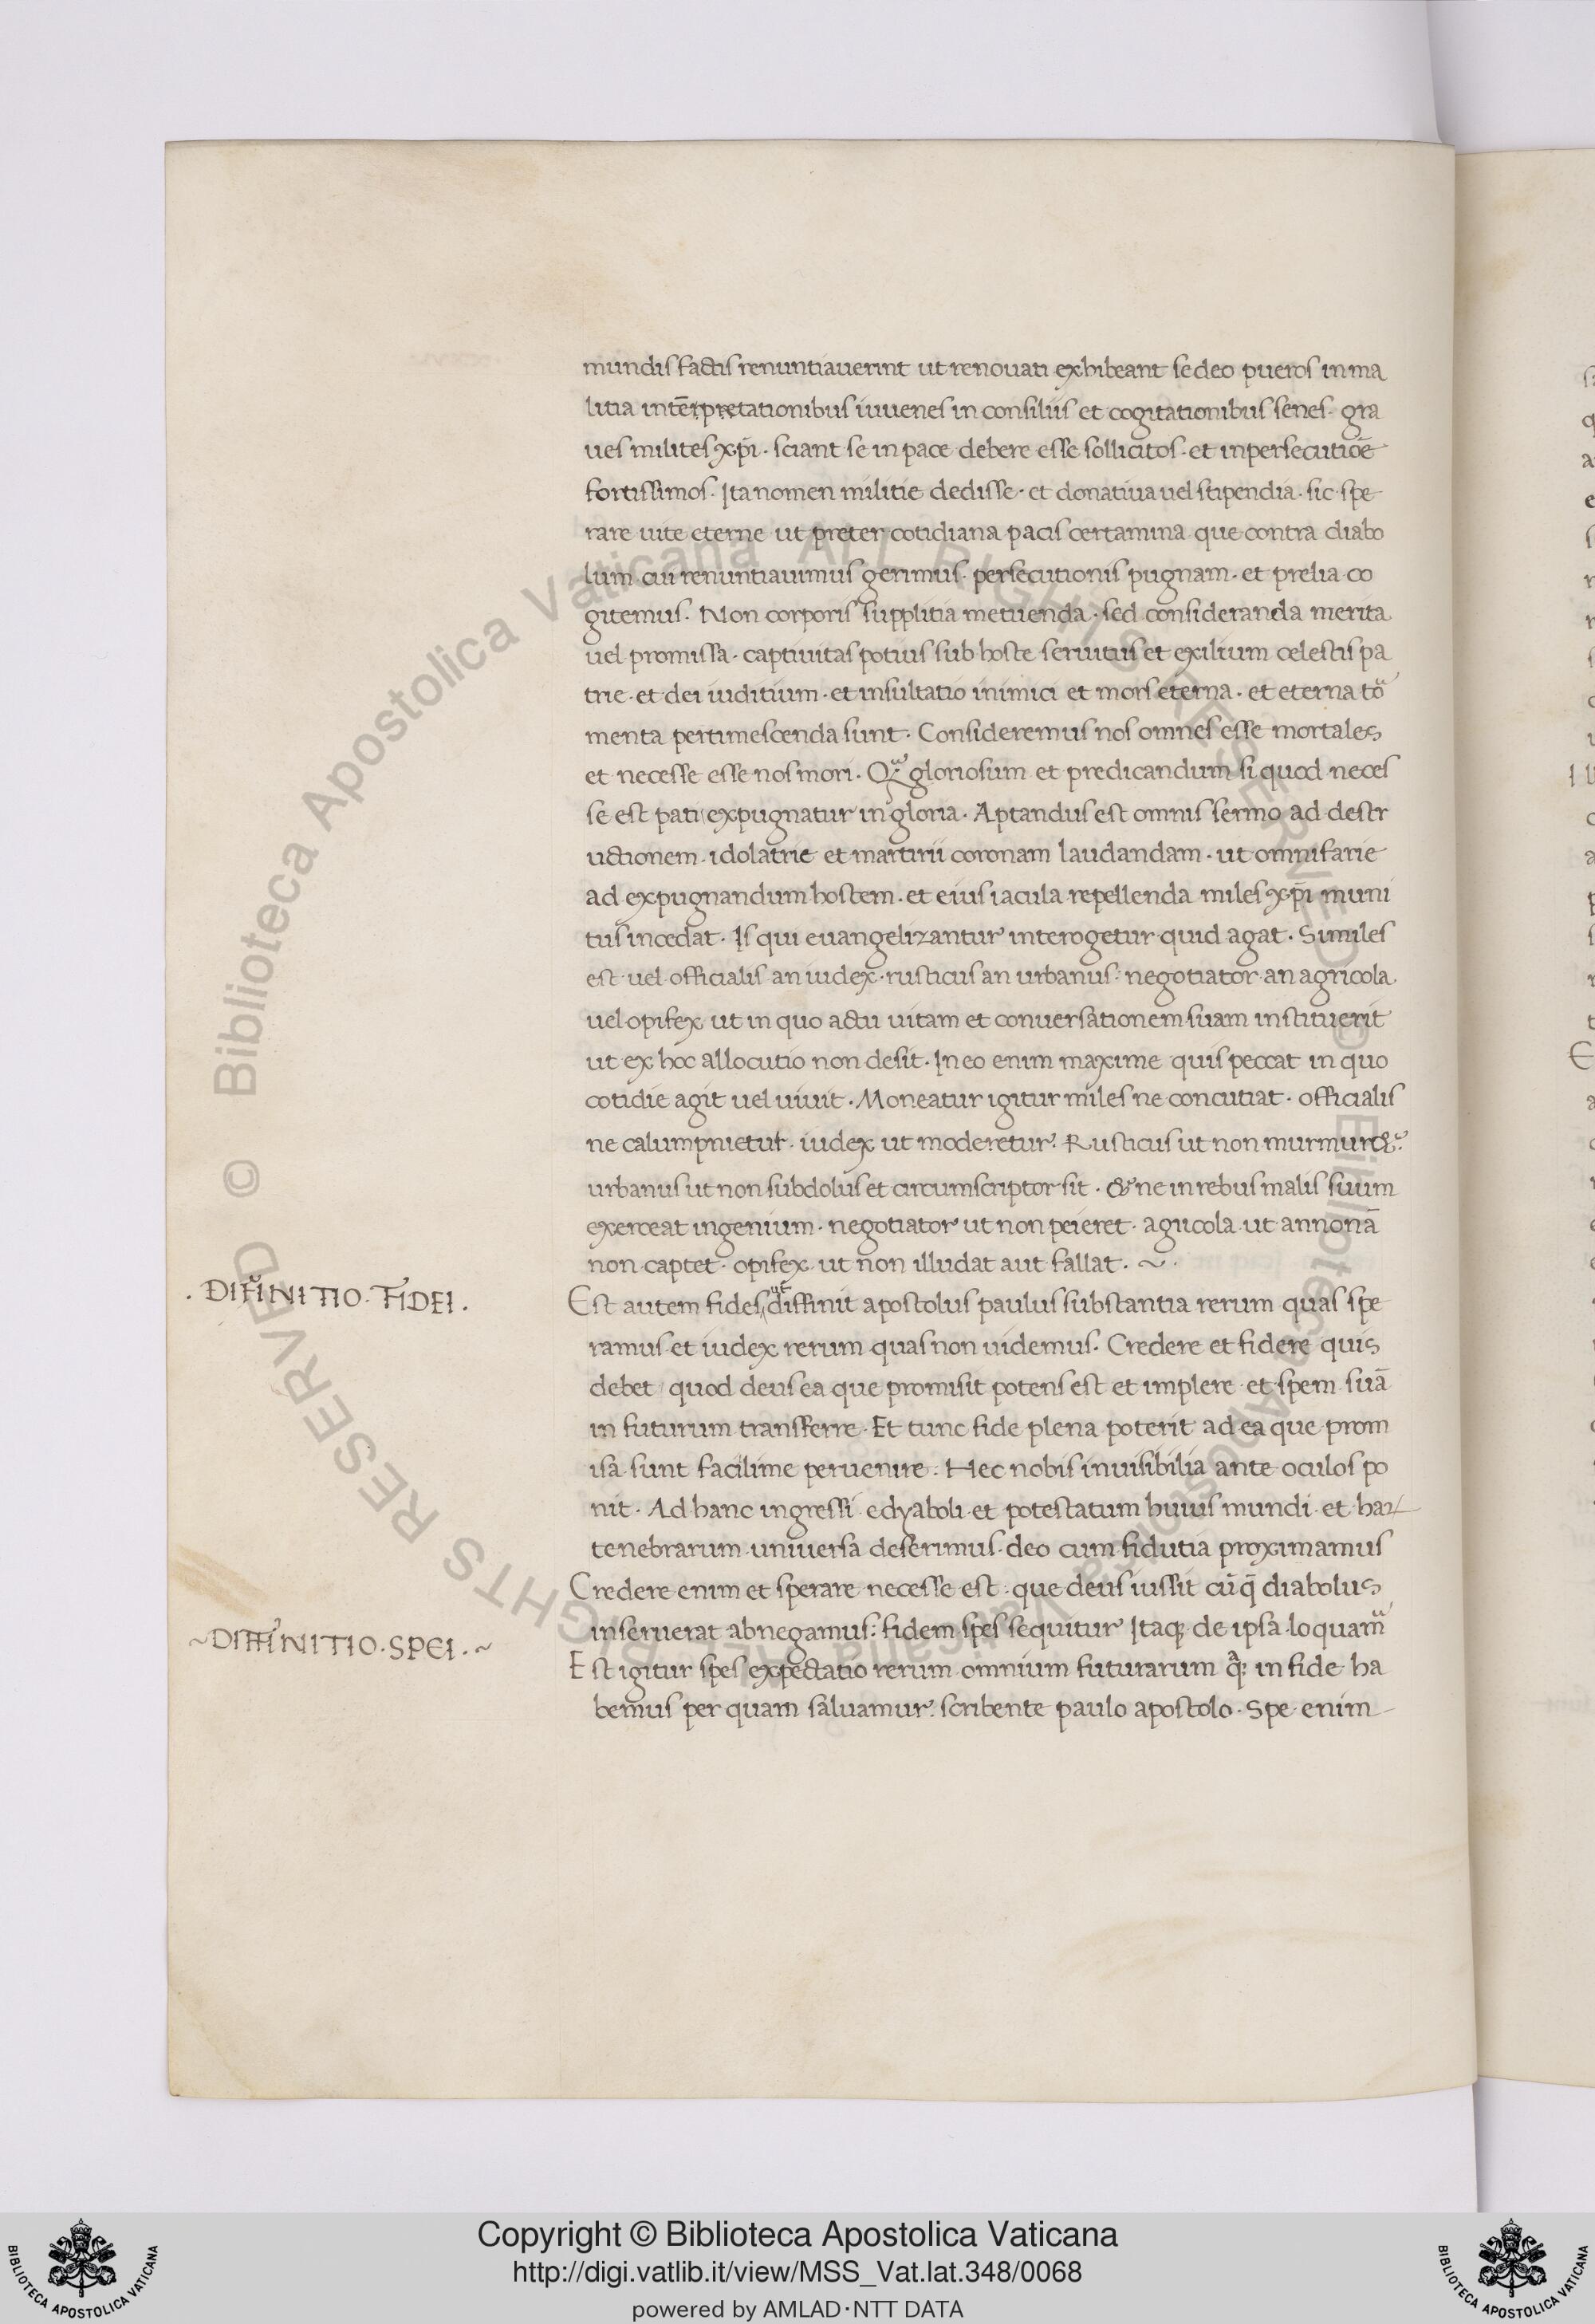 mundis factis renuntiauerint ut renouati exhibeant se deo pueros in ma
litia intēͬrpretationibus iuuenes in consiliis et cogitationibus senes· gra
ues milites xp̄i· sciant se in pace debere esse sollicitos· et in persecutiōe
fortissimos· Ita nomen militie dedisse· et donatiua uel stipendia· sic spe
rare uite eterne ut preter cotidiana pacis certamina que contra diabo
lum cui renuntiauimus gerimus· persecutionis pugnam· et prelia co
gitemus· Non corporis supplitia metuenda· sed consideranda merita
uel promissa· captiuitas potius sub hoste seruitus et exilium celestis pa
trie· et dei iuditium· et insultatio inimici et mors eterna· et eterna to᷑
menta pertimescenda sunt· Consideremus nos omnes esse mortales
et necesse esse nos mori· gloriosum et predicandum si quod neces
se est pati expugnatur in gloria· Aptandus est omnis sermo ad destr
uctionem idolatrie et martirii coronam laudandam· ut omnifarie
ad expugnandum hostem· et eius iacula repellenda miles xp̄i muni
tus incedat· Is qui euangelizantur interogetur quid agat· Similes
est uel officialis an iudex· rusticus an urbanus· negotiator an agricola
uel opifex ut in quo actu uitam et conuersationem suam instituerit
ut ex hoc allocutio non desit· In eo enim maxime quis peccat in quo
cotidie agit uel uiuit· Moneatur igitur miles ne concutiat· officialis
ne calumpnietur· iudex ut moderetur· Rusticus ut non murmur&·
urbanus ut non subdolus et circumscriptor sit· & ne in rebus malis suum
exerceat ingenium· negotiator ut non peieret· agricola ut annonā
non captet· opifex ut non illudat aut fallat· ~·
·DIFFINITIO·FIDEI·
Est autem fides ut diffinit apostolus paulus substantia rerum quas spe
ramus et iudex rerum quas non uidemus· Credere et fidere quis
debet quod deus ea que promisit potens est et implere et spem suā
in futurum transferre· Et tunc fide plena poterit ad ea que prom
isa sunt facilime peruenire: Hec nobis inuisibilia ante oculos po
nit· Ad hanc ingressi edyaboli et potestatum huius mundi· et haꝝ
tenebrarum uniuersa deserimus· deo cum fidutia proximamus
Credere enim et sperare necesse est· que deus iussit cūq̄ diabolus
inseruerat abnegamus: fidem spes sequitur Itaqꝫ de ipsa loquam᷑
~DIFFINITIO·SPEI·~
Est igitur spes expectatio rerum omnium futurarum in fide ha
bemus per quam saluamur· scribente paulo apostolo· Spe enim
Copyright © Biblioteca Apostolica Vaticana
http://digi.vatlib.it/view/MSS_Vat.lat.348/0068
powered by AMLAD·NTT DATA
BIBLIOTECA APOSTOLICA VATICANA
BIBLIOTECA APOSTOLICA VATICANA
© Biblioteca Apostolica Vaticana ALL RIGHTS RESERVED
© Biblioteca Apostolica Vaticana ALL RIGHTS RESERVED